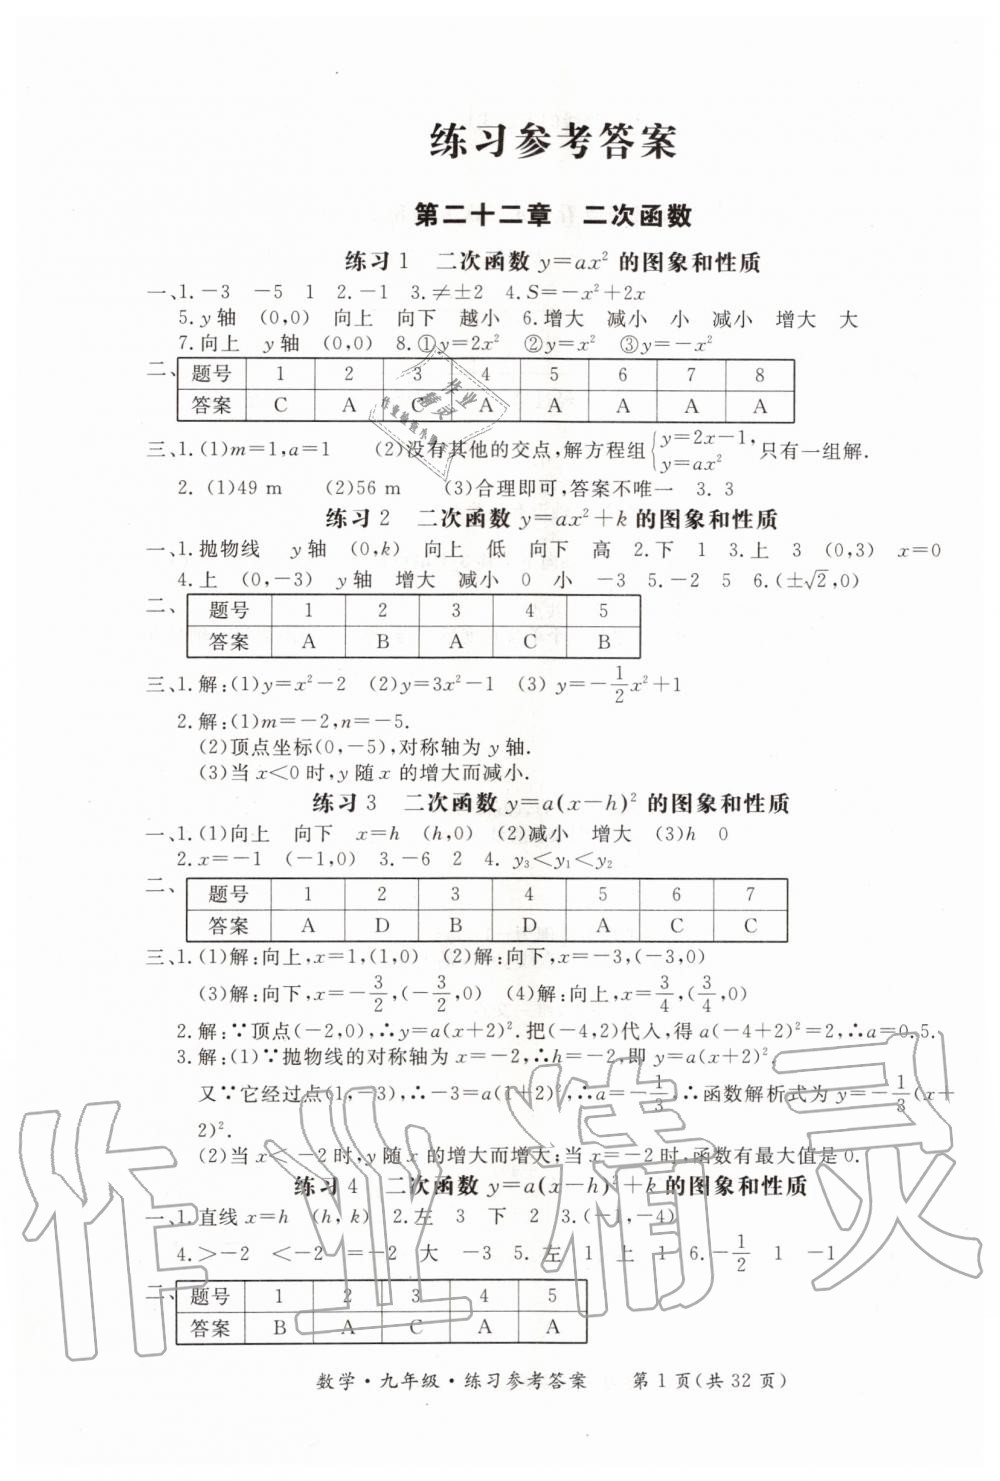 练习参考答案
第二十二章 二次函数
练习1 二次函数 y=ax² 的图象和性质
一、1.-3 -5 1 2.-1 3.≠±2 4.S=-x²+2x
5.y轴 (0,0) 向上 向下 越小 6.增大 减小 小 减小 增大 大
7.向上 y轴 (0,0) 8.①y=2x² ②y=x² ③y=-x²
二、
题号 1 2 3 4 5 6 7 8
答案 C A C A A A A A
三、1.(1)m=1,a=1 (2)没有其他的交点,解方程组{y=2x-1, y=ax² 只有一组解.
2.(1)49 m (2)56 m (3)合理即可,答案不唯一 3.3
练习2 二次函数 y=ax²+k 的图象和性质
一、1.抛物线 y轴 (0,k) 向上 低 向下 高 2.下 1 3.上 3 (0,3) x=0
4.上 (0,-3) y轴 增大 减小 0 小 -3 5.-2 5 6.(±√2,0)
二、
题号 1 2 3 4 5
答案 A B A C B
三、1.解:(1)y=x²-2 (2)y=3x²-1 (3) y=-1/2x²+1
2.解:(1)m=-2,n=-5.
(2)顶点坐标(0,-5),对称轴为y轴.
(3)当x<0时,y随x的增大而减小.
练习3 二次函数 y=a(x-h)² 的图象和性质
一、1.(1)向上 向下 x=h (h,0) (2)减小 增大 (3)h 0
2.x=-1 (-1,0) 3.-6 2 4. y₃<y₁<y₂
二、
题号 1 2 3 4 5 6 7
答案 A D B D A C C
三、1.(1)解:向上,x=1,(1,0) (2)解:向下,x=-3,(-3,0)
(3)解:向下,x=-3/2,(-3/2,0) (4)解:向上,x=3/4,(3/4,0)
2.解:∵顶点(-2,0),∴y=a(x+2)².把(-4,2)代入,得a(-4+2)²=2,∴a=0.5.
3.解:(1)∵抛物线的对称轴为x=-2,∴h=-2,即y=a(x+2)².
又∵它经过点(1,-3),∴-3=a(1+2)²,∴a=-1/3,∴函数解析式为y=-1/3(x+
2)².
(2)当x<-2时,y随x的增大而增大;当x=-2时,函数有最大值是0.
练习4 二次函数 y=a(x-h)²+k 的图象和性质
一、1.直线x=h (h,k) 2.左 3 下 2 3.(-1,-4)
4.>-2 <-2 =-2 大 -3 5.左 1 上 1 6.-1/2 1 -1
二、
题号 1 2 3 4 5
答案 B A C A A
数学·九年级·练习参考答案 第1页(共32页)
作业精灵